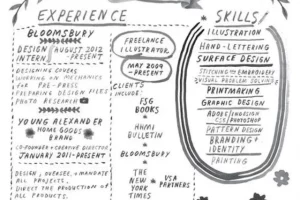 EXPERIENCE
BLOOMSBURY
DESIGN INTERN / AUGUST 2012 - PRESENT
DESIGNING COVERS
WORKING ON MECHANICS
FOR PRE-PRESS
PREPARING DESIGN FILES
PHOTO RESEARCH
YOUNG ALEXANDER
HOME GOODS
BRAND
CO-FOUNDER + CREATIVE DIRECTOR
JANUARY 2011-PRESENT
DESIGN, OVERSEE, + MANAGE
ALL PROJECTS,
DIRECT THE PRODUCTION OF
ALL PRODUCTS.
FREELANCE
ILLUSTRATOR
MAY 2009
-PRESENT
CLIENTS
INCLUDE:
FSG
BOOKS
HHMI
BULLETIN
BLOOMSBURY
THE
NEW
YORK
TIMES
USA
PARTNERS
SKILLS/
ILLUSTRATION
HAND-LETTERING
SURFACE DESIGN
STITCHING + EMBROIDERY
VISUAL PROBLEM SOLVING
PRINTMAKING
GRAPHIC DESIGN
ADOBE/INDESIGN
CS5/PHOTOSHOP
PATTERN DESIGN
BRANDING +
IDENTITY
PAINTING